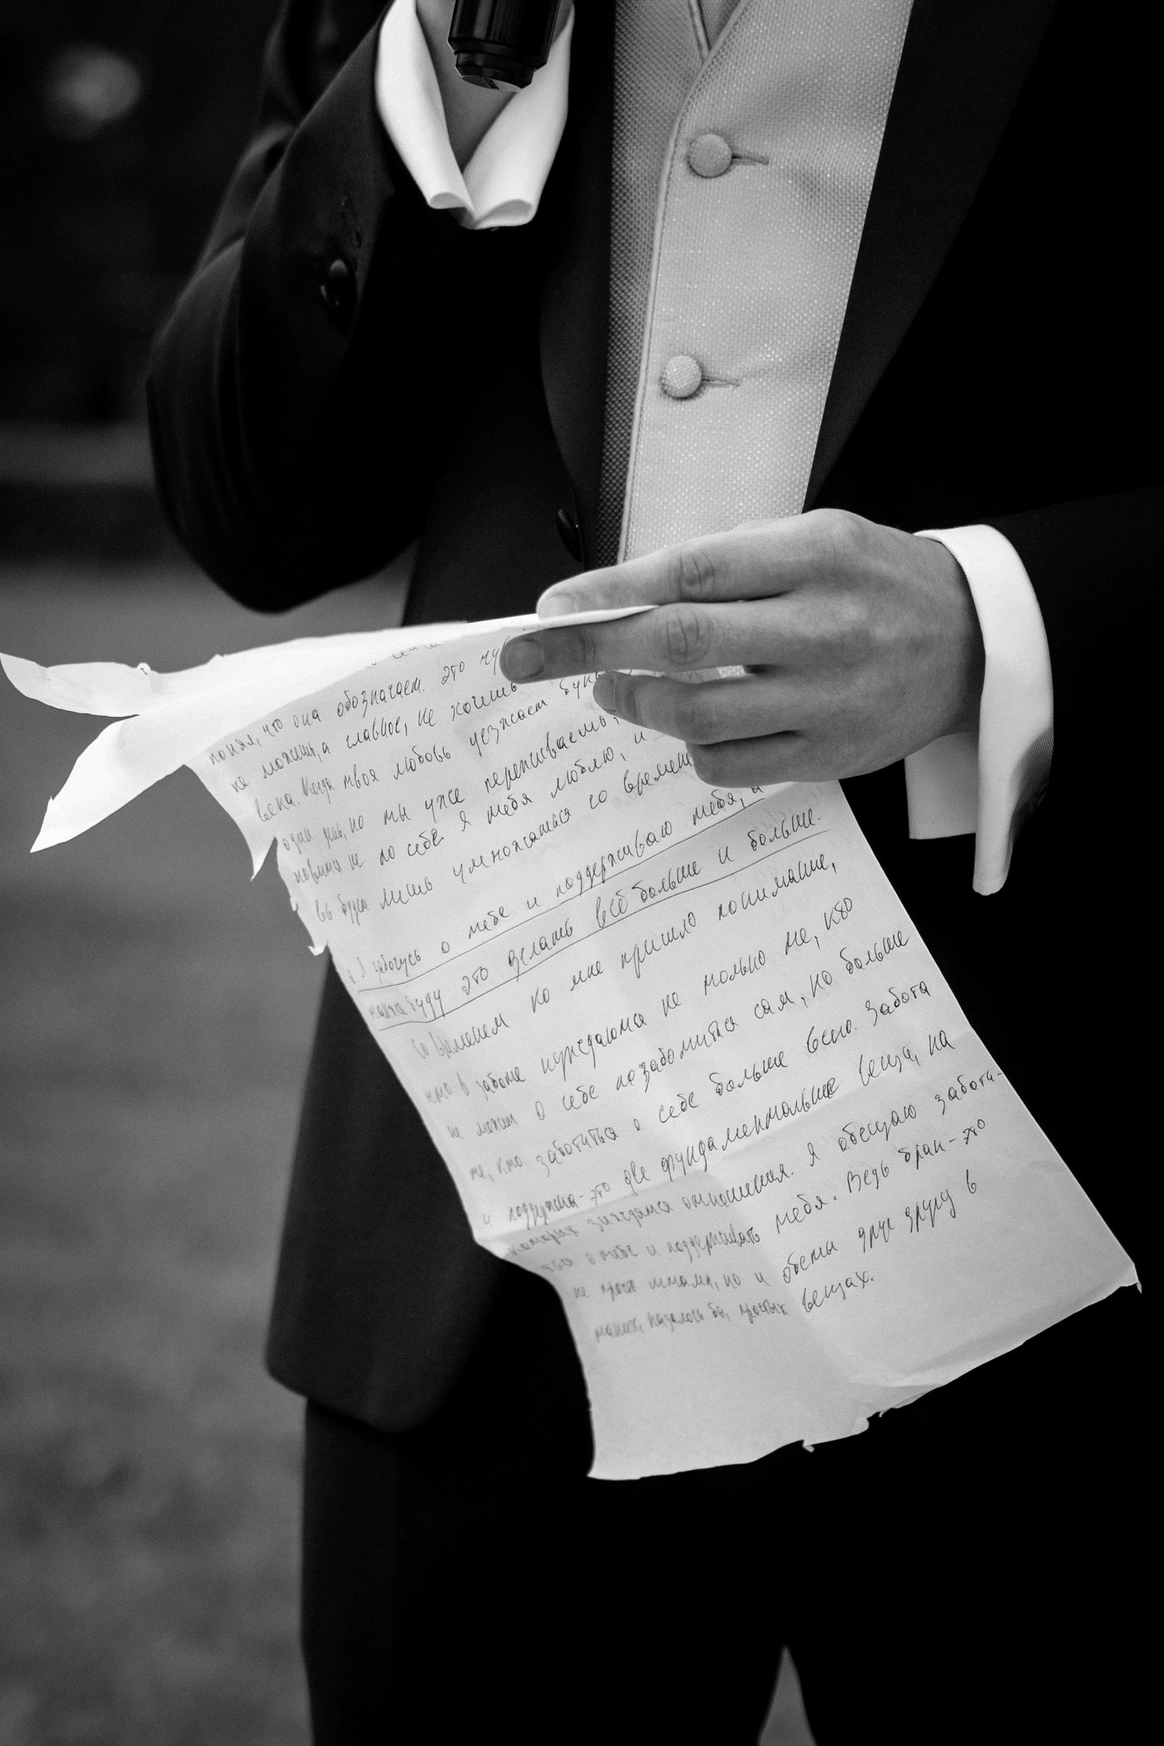 понял, что она обозначает. Это
не можешь, а главное, не хочешь
века. Когда твоя любовь уезжает
один день, но мы уже переписываемся,
не по себе. Я тебя люблю, и
будет лишь умножаться со временем
Я забочусь о тебе и поддерживаю тебя, и
буду это делать всё больше и больше.
Со временем ко мне пришло понимание,
что в заботе нуждаются не только те, кто
не может о себе позаботиться сам, но больше
те, кто заботится о себе больше всего. Забота
и поддержка - это две фундаментальные вещи, на
которых зиждутся отношения. Я обещаю заботи-
о тебе и поддерживать тебя. Ведь брак - это
не просто штамп, но и обеты друг другу в
таких, казалось бы, простых вещах.